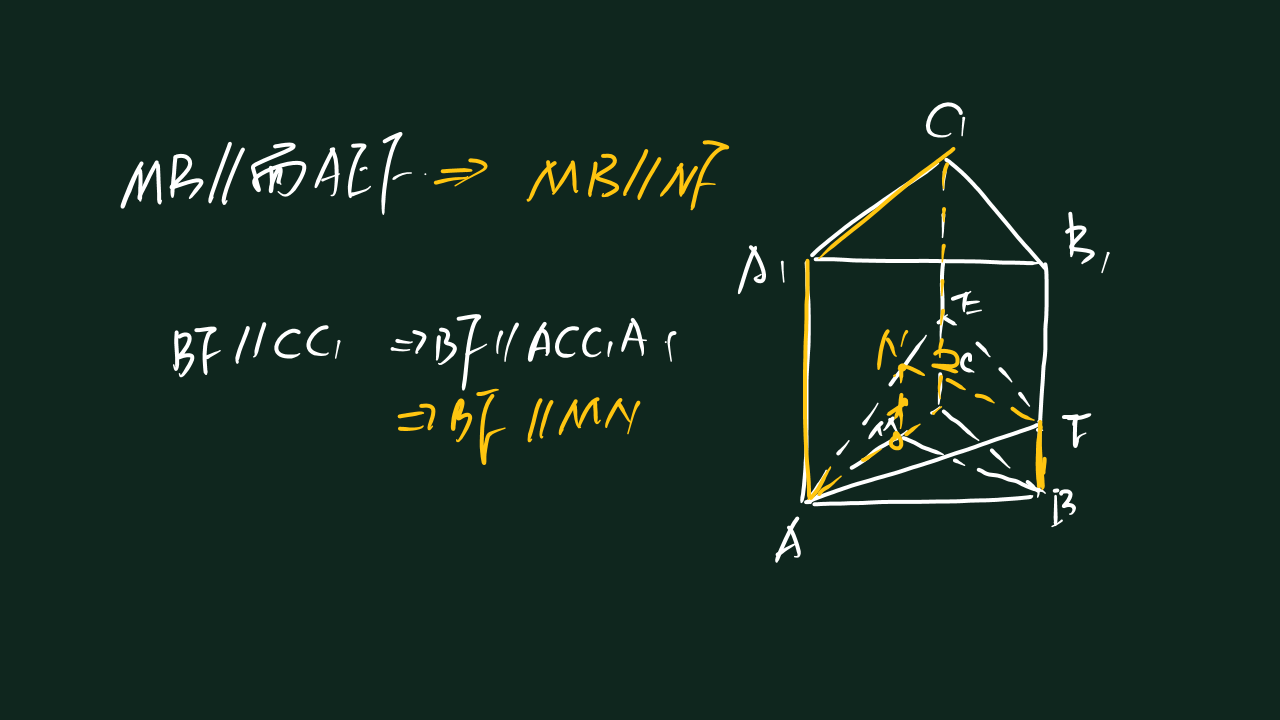 MB//面AEF ⇒ MB//NF
BF//CC₁ ⇒BF//ACC₁A₁
⇒BF//MN
C₁
A₁
B₁
E
N
C
M
F
B
A